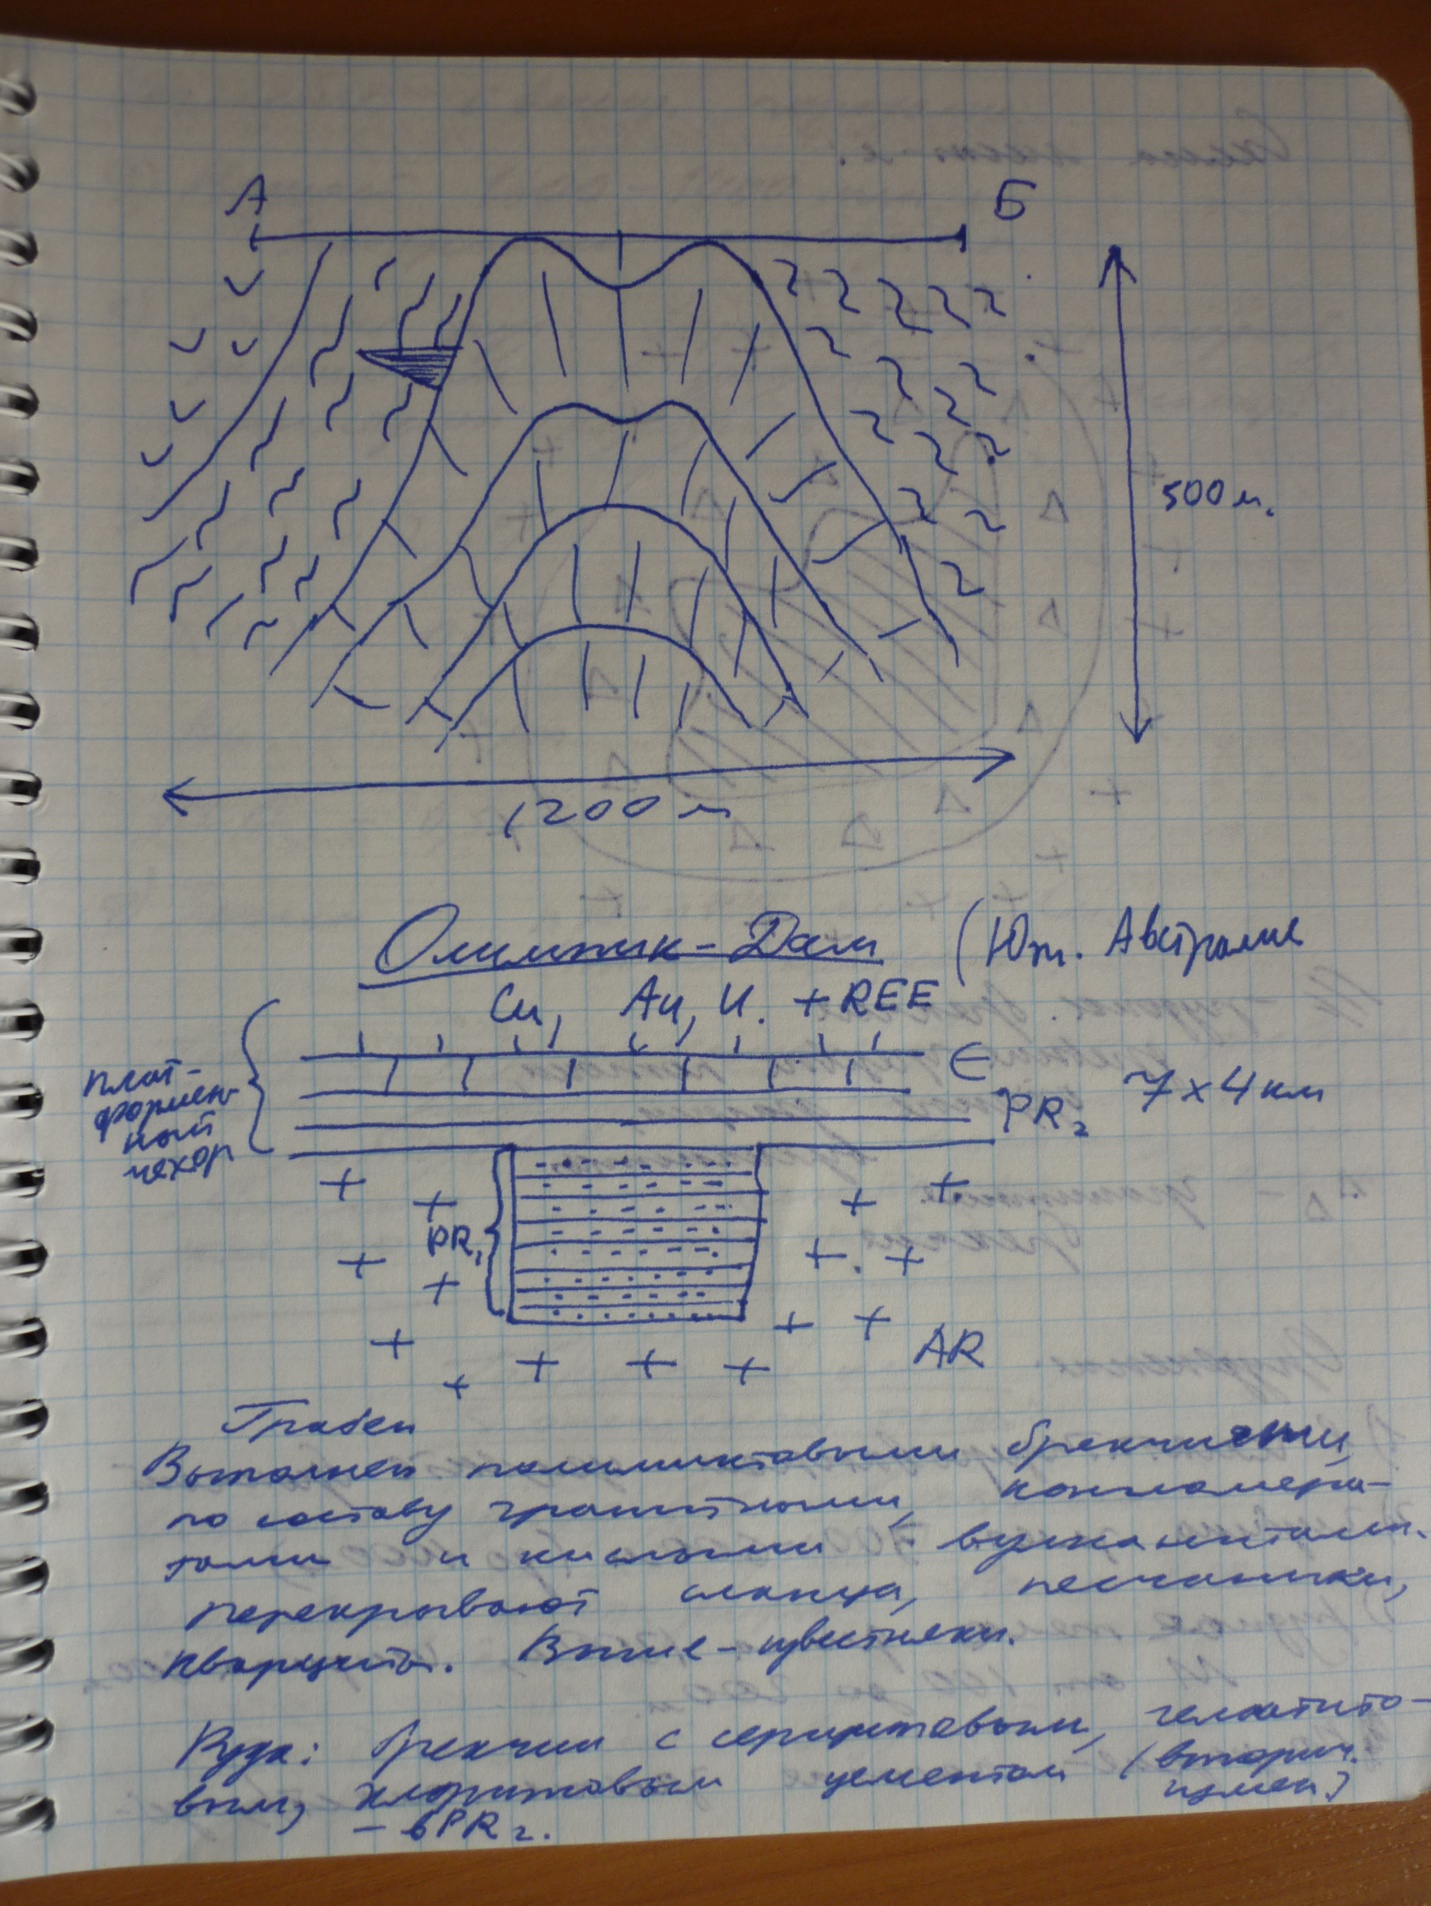 А Б
500 м.
1200 м
Олимпик-Дам (Юж. Австралия
Cu, Au, U. + REE
плат-
формен-
ный
чехол
Є
PR₂ 7 x 4 км
PR₁
AR
Грабен
Выполнен полимиктовыми брекчиями,
по составу гранитными, конгломера-
тами и кислыми вулканитами.
перекрывают сланцы, песчаники,
кварциты. Выше - известняки.
Руда: брекчии с серицитовым, гематито-
вым, хлоритовым цементом (вторич.
измен.)
- в PR₂.